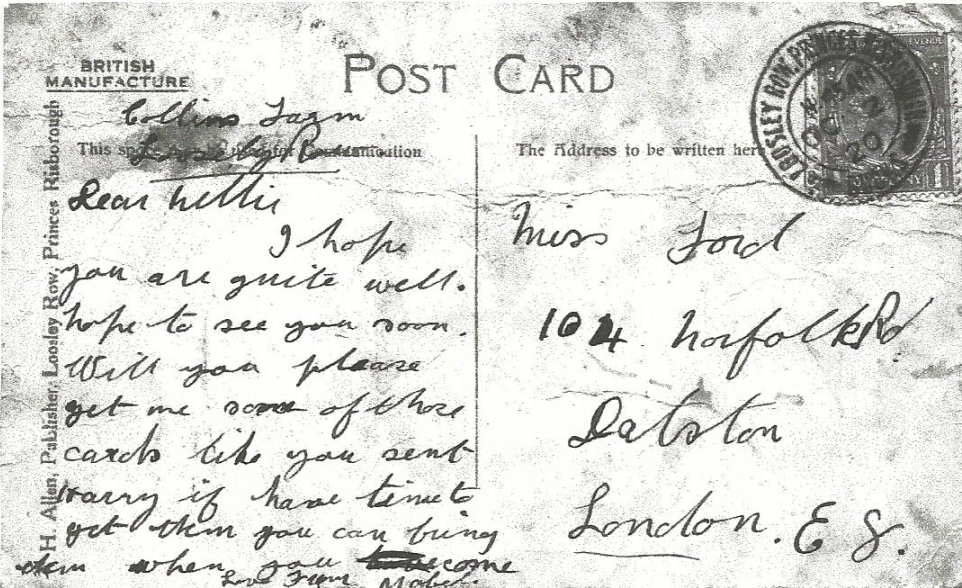 BRITISH
MANUFACTURE
POST CARD
This space may be used for Communication
The Address to be written here
H. Allen, Publisher, Loosley Row, Princes Risborough
LOOSLEY ROW, PRINCES RISBOROUGH
20
Collins Farm
Loosley Row
Dear Nellie
I hope
you are quite well.
hope to see you soon.
Will you please
get me some of those
cards like you sent
Harry if have time to
get them you can bring
them when you come
Love From Mabel
Miss Ford
104 Norfolk Rd
Dalston
London. E 8.